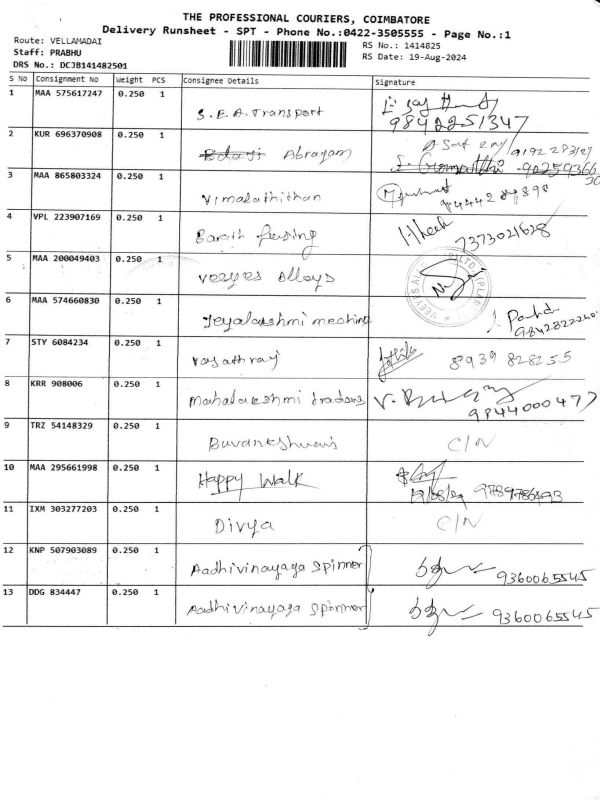 THE PROFESSIONAL COURIERS, COIMBATORE
Delivery Runsheet - SPT - Phone No.:0422-3505555 - Page No.:1
Route: VELLAMADAI
RS No.: 1414825
Staff: PRABHU
RS Date: 19-Aug-2024
DRS No.: DCJB141482501
S No Consignment No Weight PCS Consignee Details Signature
1 MAA 575617247 0.250 1 S.E.A. Transport 9842251347
2 KUR 696370908 0.250 1 Abragam
3 MAA 865803324 0.250 1 Vimalathithan
4 VPL 223907169 0.250 1 7373021628
5 MAA 200049403 0.250 1 Veeyes Alloys
6 MAA 574660830 0.250 1 Jeyalakshmi
7 STY 6084234 0.250 1 8939 828255
8 KRR 908006 0.250 1 Mahalakshmi traders 9844000477
9 TRZ 54148329 0.250 1 C/N
10 MAA 295661998 0.250 1 Happy Walk
11 IXM 303277203 0.250 1 Divya C/N
12 KNP 507903089 0.250 1 Aadhivinayaga Spinner 9360065545
13 DDG 834447 0.250 1 Aadhivinayaga Spinner 9360065545